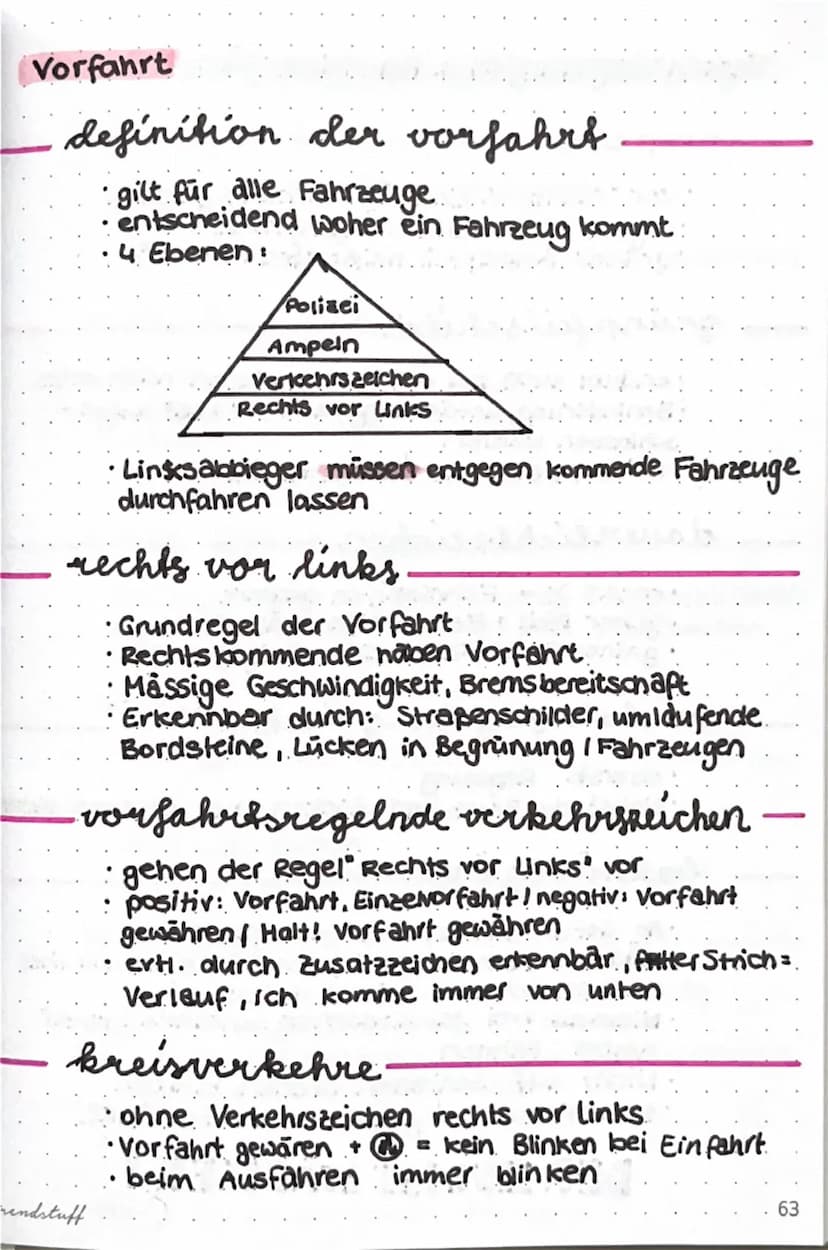 Vorfahrt
definition der vorfahrt
· gilt für alle Fahrzeuge
· entscheidend woher ein Fahrzeug kommt
· 4 Ebenen:
Polizei
Ampeln
Verkehrszeichen
Rechts vor Links
· Linksabbieger müssen entgegen kommende Fahrzeuge
durchfahren lassen
rechts vor links
· Grundregel der Vorfahrt
· Rechtskommende haben Vorfahrt
· Mässige Geschwindigkeit, Bremsbereitschaft
· Erkennbar durch: Straßenschilder, umlaufende
Bordsteine, Lücken in Begrünung / Fahrzeugen
vorfahrtsregelnde verkehrszeichen
· gehen der Regel "Rechts vor Links" vor
· positiv: Vorfahrt, Einzelvorfahrt / negativ: Vorfahrt
gewähren / Halt! Vorfahrt gewähren
· evtl. durch Zusatzzeichen erkennbar, fetter Strich =
Verlauf, ich komme immer von unten
kreisverkehre
· ohne Verkehrszeichen rechts vor links
· Vorfahrt gewären + = kein Blinken bei Einfahrt
· beim Ausfahren immer blinken
endstuff
63